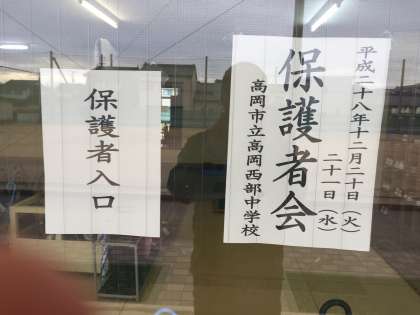 平成二十八年十二月二十日（火）
二十一日（水）
保護者会
高岡市立高岡西部中学校
保護者入口